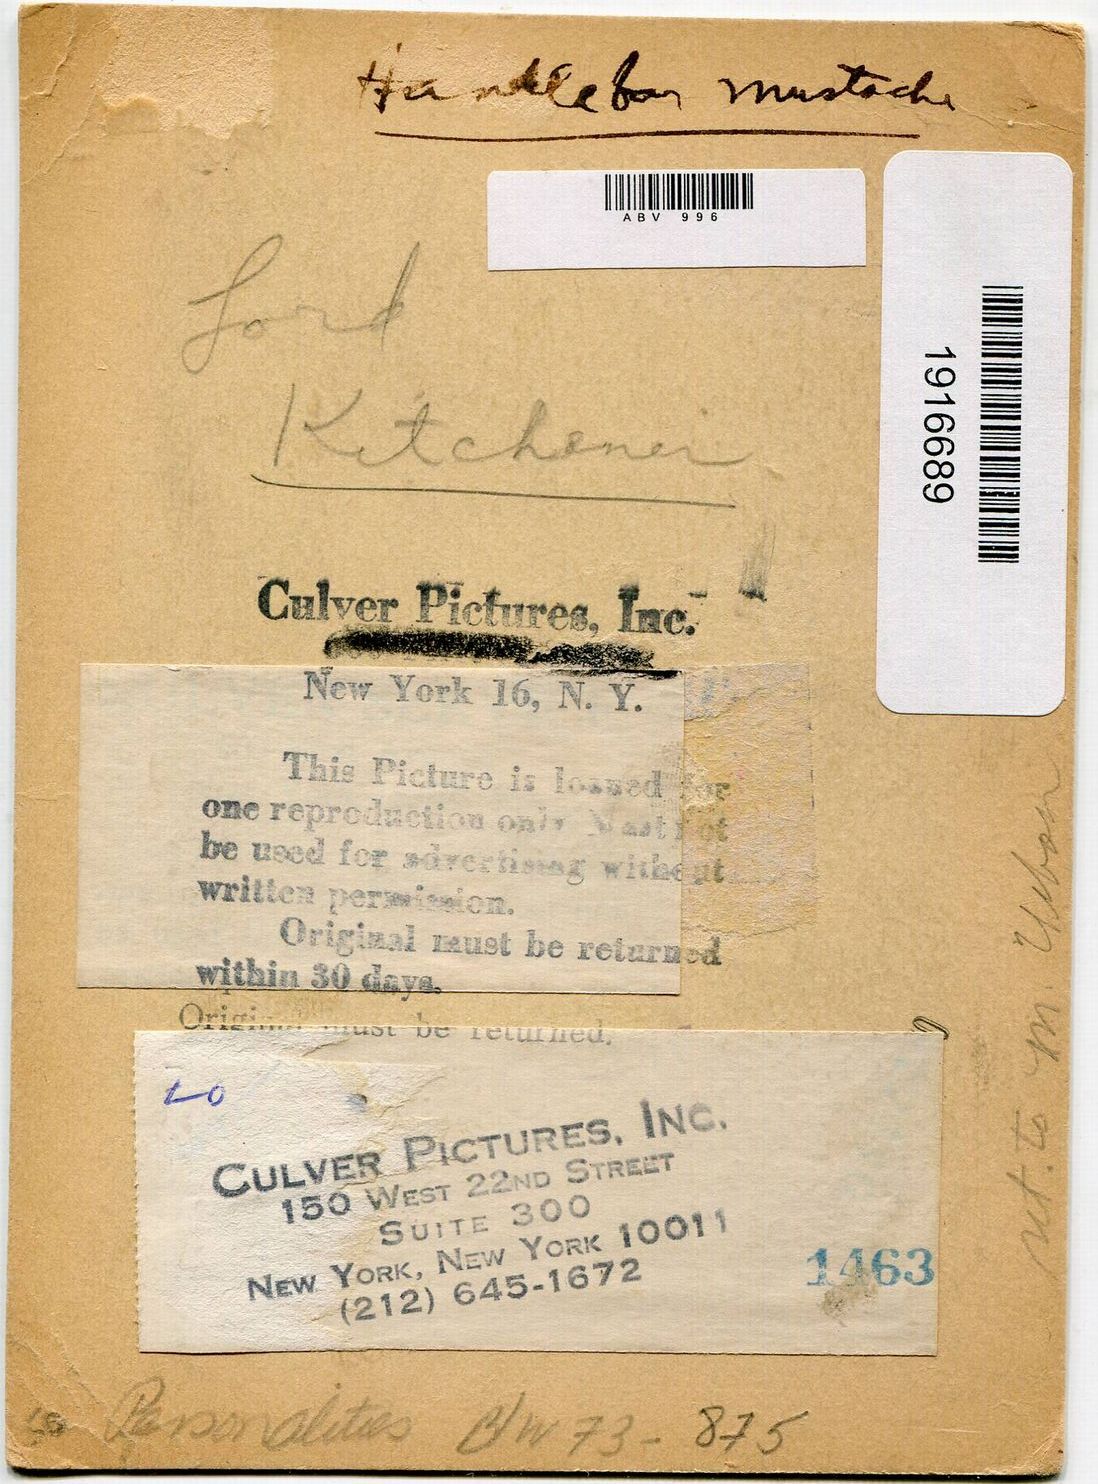 Handlebar mustache
ABV 996
1916689
Lord
Kitchener
Culver Pictures, Inc.
New York 16, N. Y.
This Picture is loaned for
one reproduction only. Must not
be used for advertising without
written permission.
Original must be returned
within 30 days.
Original must be returned.
LO
CULVER PICTURES, INC.
150 WEST 22ND STREET
SUITE 300
NEW YORK, NEW YORK 10011
(212) 645-1672
1463
ret. to M.
Personalities B/W 73 - 875